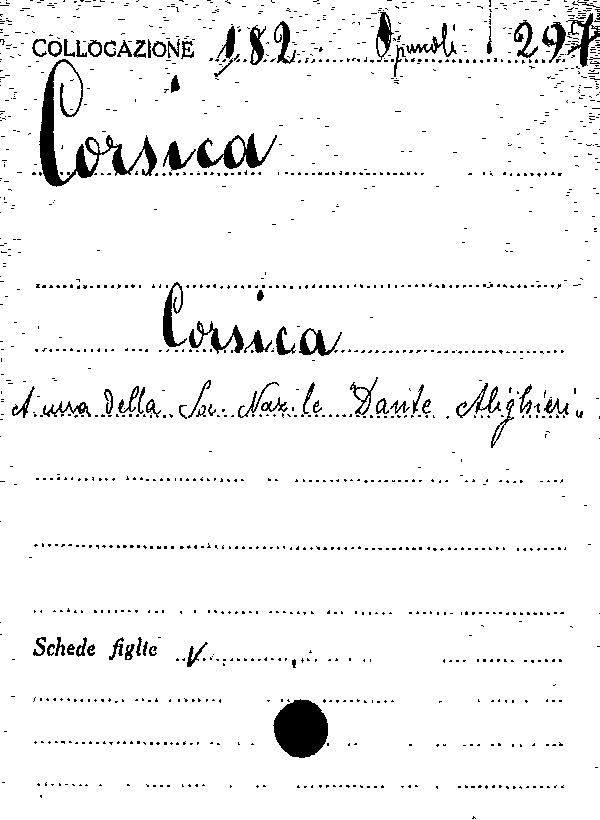 COLLOCAZIONE 182. Opuscoli 297
Corsica
Corsica
A cura della Soc. Naz.le "Dante Alighieri"
Schede figlie V